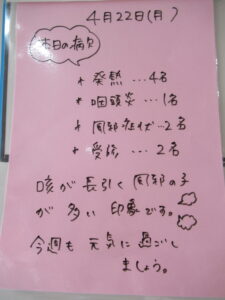 4月22日(月)
本日の病欠
* 発熱…4名
* 咽頭炎…1名
* 風邪症状…2名
* 受診…2名
咳が長引く風邪の子
が多い印象です。
今週も元気に過ごし
ましょう。